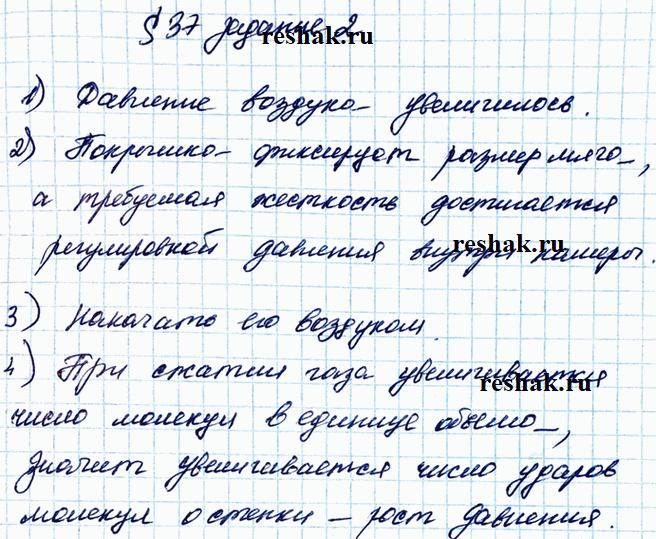 § 37 задание 2
reshak.ru
1) Давление воздуха увеличилось.
2) Покрышка фиксирует размер мяча,
а требуемая жесткость достигается
регулировкой давления внутри камеры.
reshak.ru
3) Накачать его воздухом.
4) При сжатии газа увеличивается
reshak.ru
число молекул в единице объема,
значит увеличивается число ударов
молекул о стенки – рост давления.